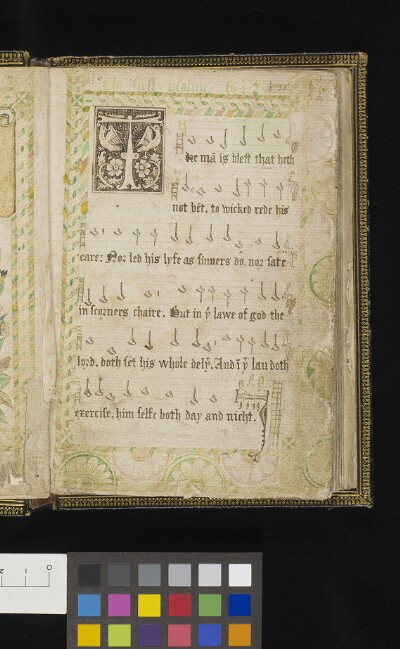 The mā is blest that heth
not bēt, to wicked rede his
eare: Nor led his lyfe as sinners do, nor sate
in scorners chaire. But in ẏ lawe of god the
lord, doth set his whole delẏ. And ī ẏ lau doth
exercise, him selfe both day and nicht.
0 1 2